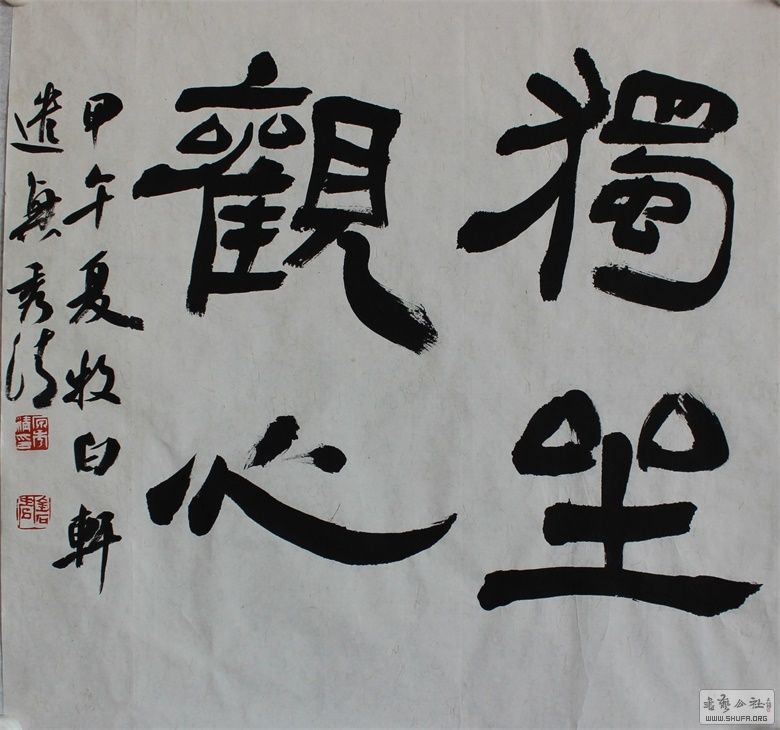 獨坐
觀心
甲午夏牧白軒
遣無秀清
書藝公社
WWW.SHUFA.ORG